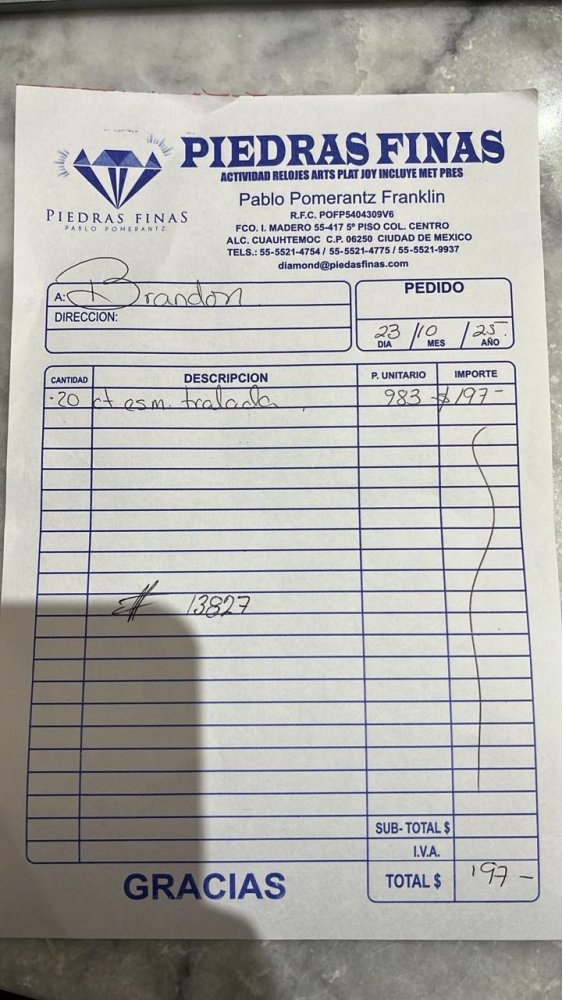 PIEDRAS FINAS
PABLO POMERANTZ
PIEDRAS FINAS
ACTIVIDAD RELOJES ARTS PLAT JOY INCLUYE MET PRES
Pablo Pomerantz Franklin
R.F.C. POFP5404309V6
FCO. I. MADERO 55-417 5º PISO COL. CENTRO
ALC. CUAUHTEMOC C.P. 06250 CIUDAD DE MEXICO
TELS.: 55-5521-4754 / 55-5521-4775 / 55-5521-9937
diamond@piedasfinas.com
A: Brandon
DIRECCION:
PEDIDO
23 /10 /25.
DIA MES AÑO
CANTIDAD DESCRIPCION P. UNITARIO IMPORTE
.20 ct esm. tralada 983 $197-
# 13827
SUB- TOTAL $
I.V.A.
TOTAL $ 197-
GRACIAS